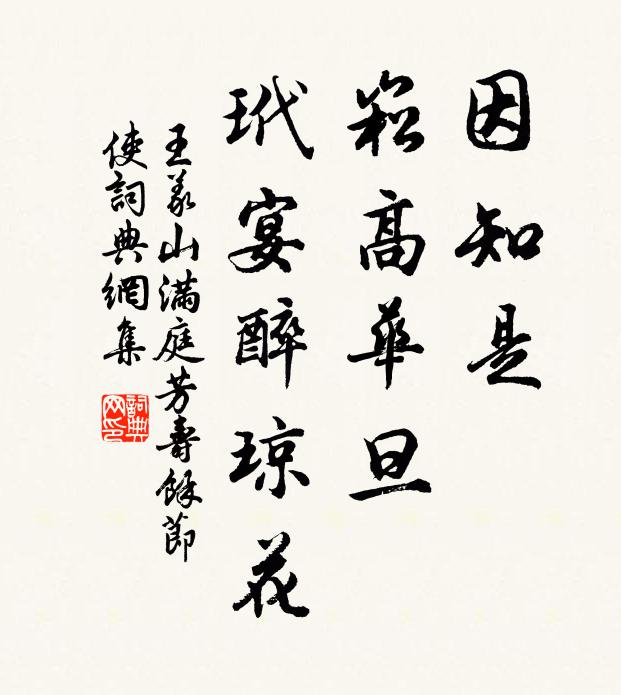 因知是
崧高華旦
玳宴醉琼花
王義山滿庭芳壽餘節
使詞典網集
詞典网印